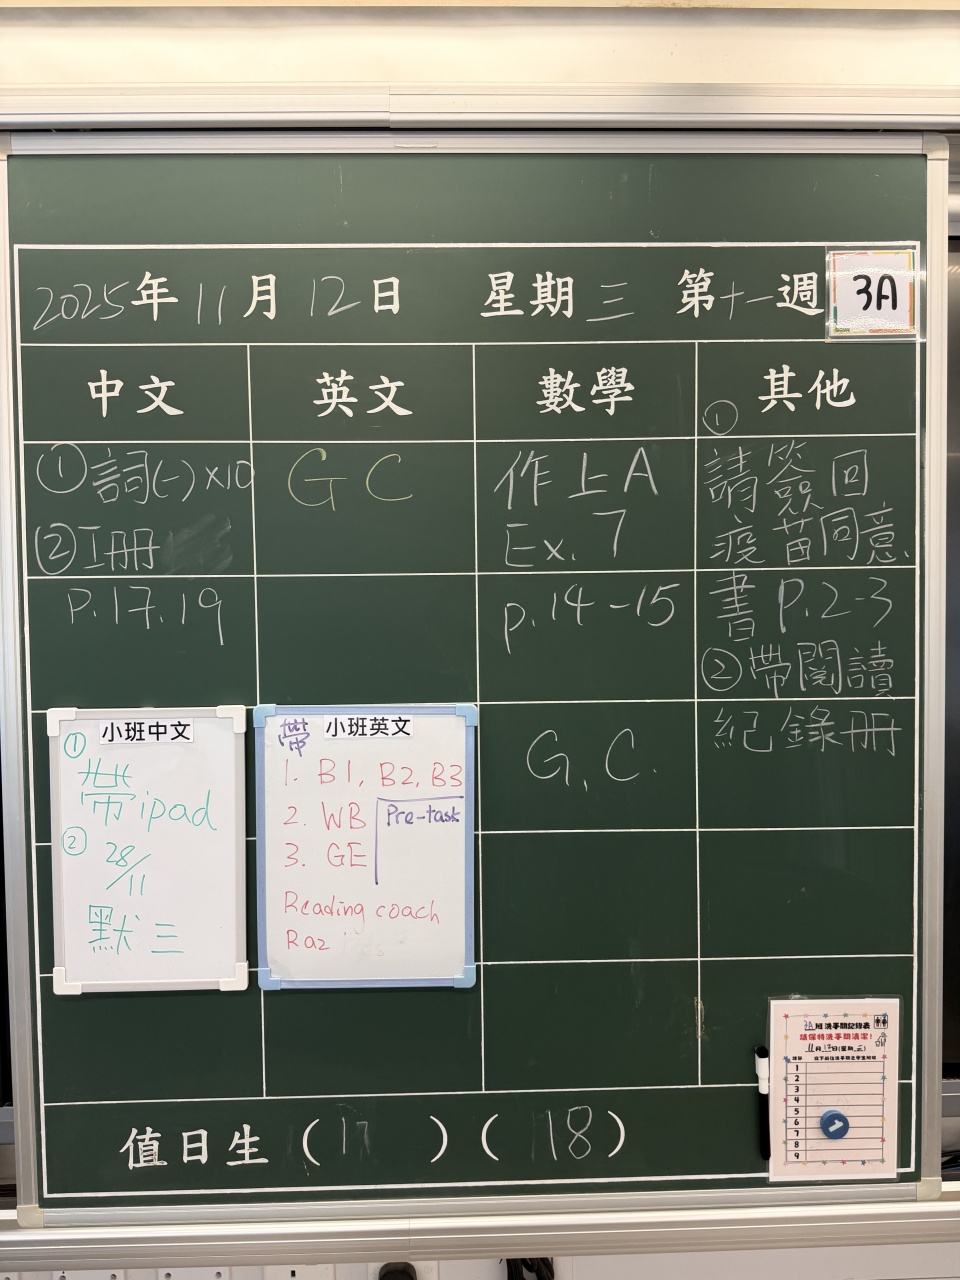 2025年11月12日 星期三 第十一週 3A
中文 英文 數學 其他
①詞(一)×10
②工冊
P.17.19
GC
作上A
Ex.7
p.14-15
G.C.
①
請簽回
疫苗同意
書P.2-3
②帶閱讀
紀錄冊
小班中文
①
帶ipad
②
28/11
默三
帶 小班英文
1. B1, B2, B3
2. WB
3. GE
Pre-task
Reading coach
Raz
3A班洗手間記錄表
請保持洗手間清潔!
11月12日(星期三)
1
2
3
4
5
6
7
8
9
值日生(17)(18)